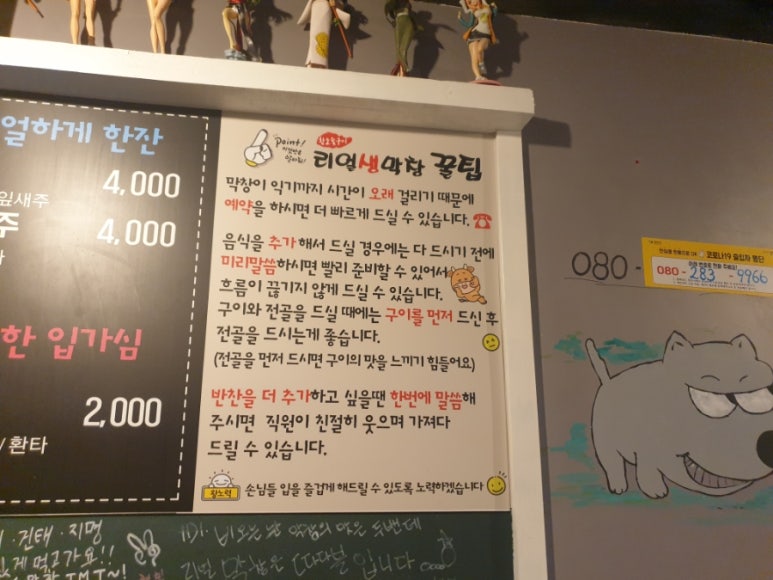 얼하게 한잔
4,000
잎새주
주 4,000
한 입가심
2,000
/ 환타
Point!
리얼생막창 꿀팁
막창이 익기까지 시간이 오래 걸리기 때문에
예약을 하시면 더 빠르게 드실 수 있습니다.
음식을 추가해서 드실 경우에는 다 드시기 전에
미리말씀하시면 빨리 준비할 수 있어서
흐름이 끊기지 않게 드실 수 있습니다.
구이와 전골을 드실 때에는 구이를 먼저 드신 후
전골을 드시는게 좋습니다.
(전골을 먼저 드시면 구이의 맛을 느끼기 힘들어요)
반찬을 더 추가하고 싶을땐 한번에 말씀해
주시면 직원이 친절히 웃으며 가져다
드릴 수 있습니다.
왕노력 손님들 입을 즐겁게 해드릴 수 있도록 노력하겠습니다
080-
코로나19 출입자 명단
080-283-9966
진태·지명
비오는날 막창의 맛은 두번데
리얼 막창은 입니다